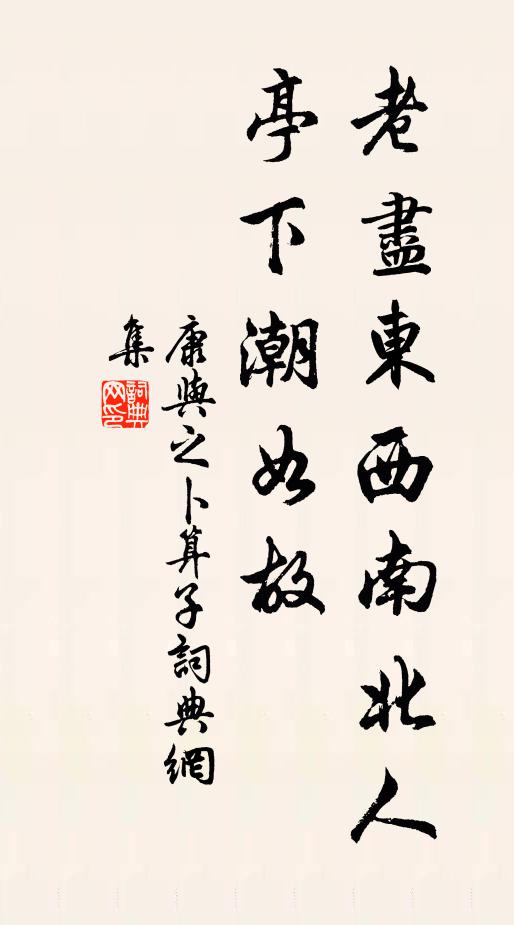 老盡東西南北人
亭下潮如故
康與之卜算子詞典網
集
詞典
网印